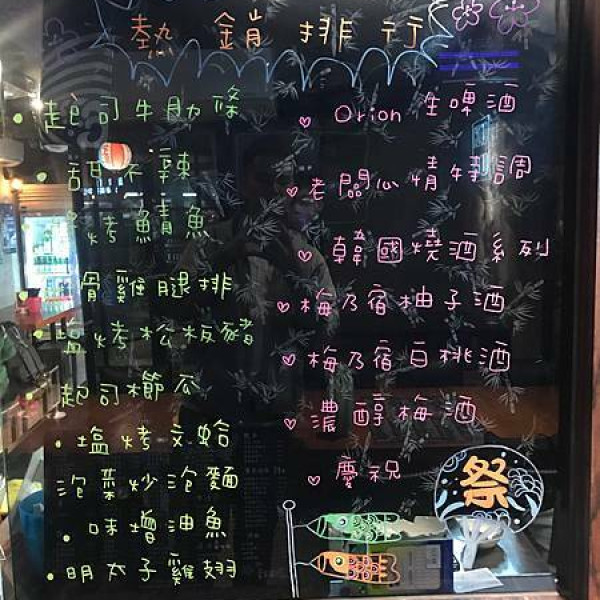 熱銷排行
起司牛肋條
甜不辣
烤鯖魚
骨雞腿排
塩烤松板豬
起司櫛瓜
塩烤文蛤
泡菜炒泡麵
味增油魚
明太子雞翅
Orion 生啤酒
老闆心情特調
韓國燒酒系列
梅乃宿柚子酒
梅乃宿白桃酒
濃醇梅酒
慶祝
祭